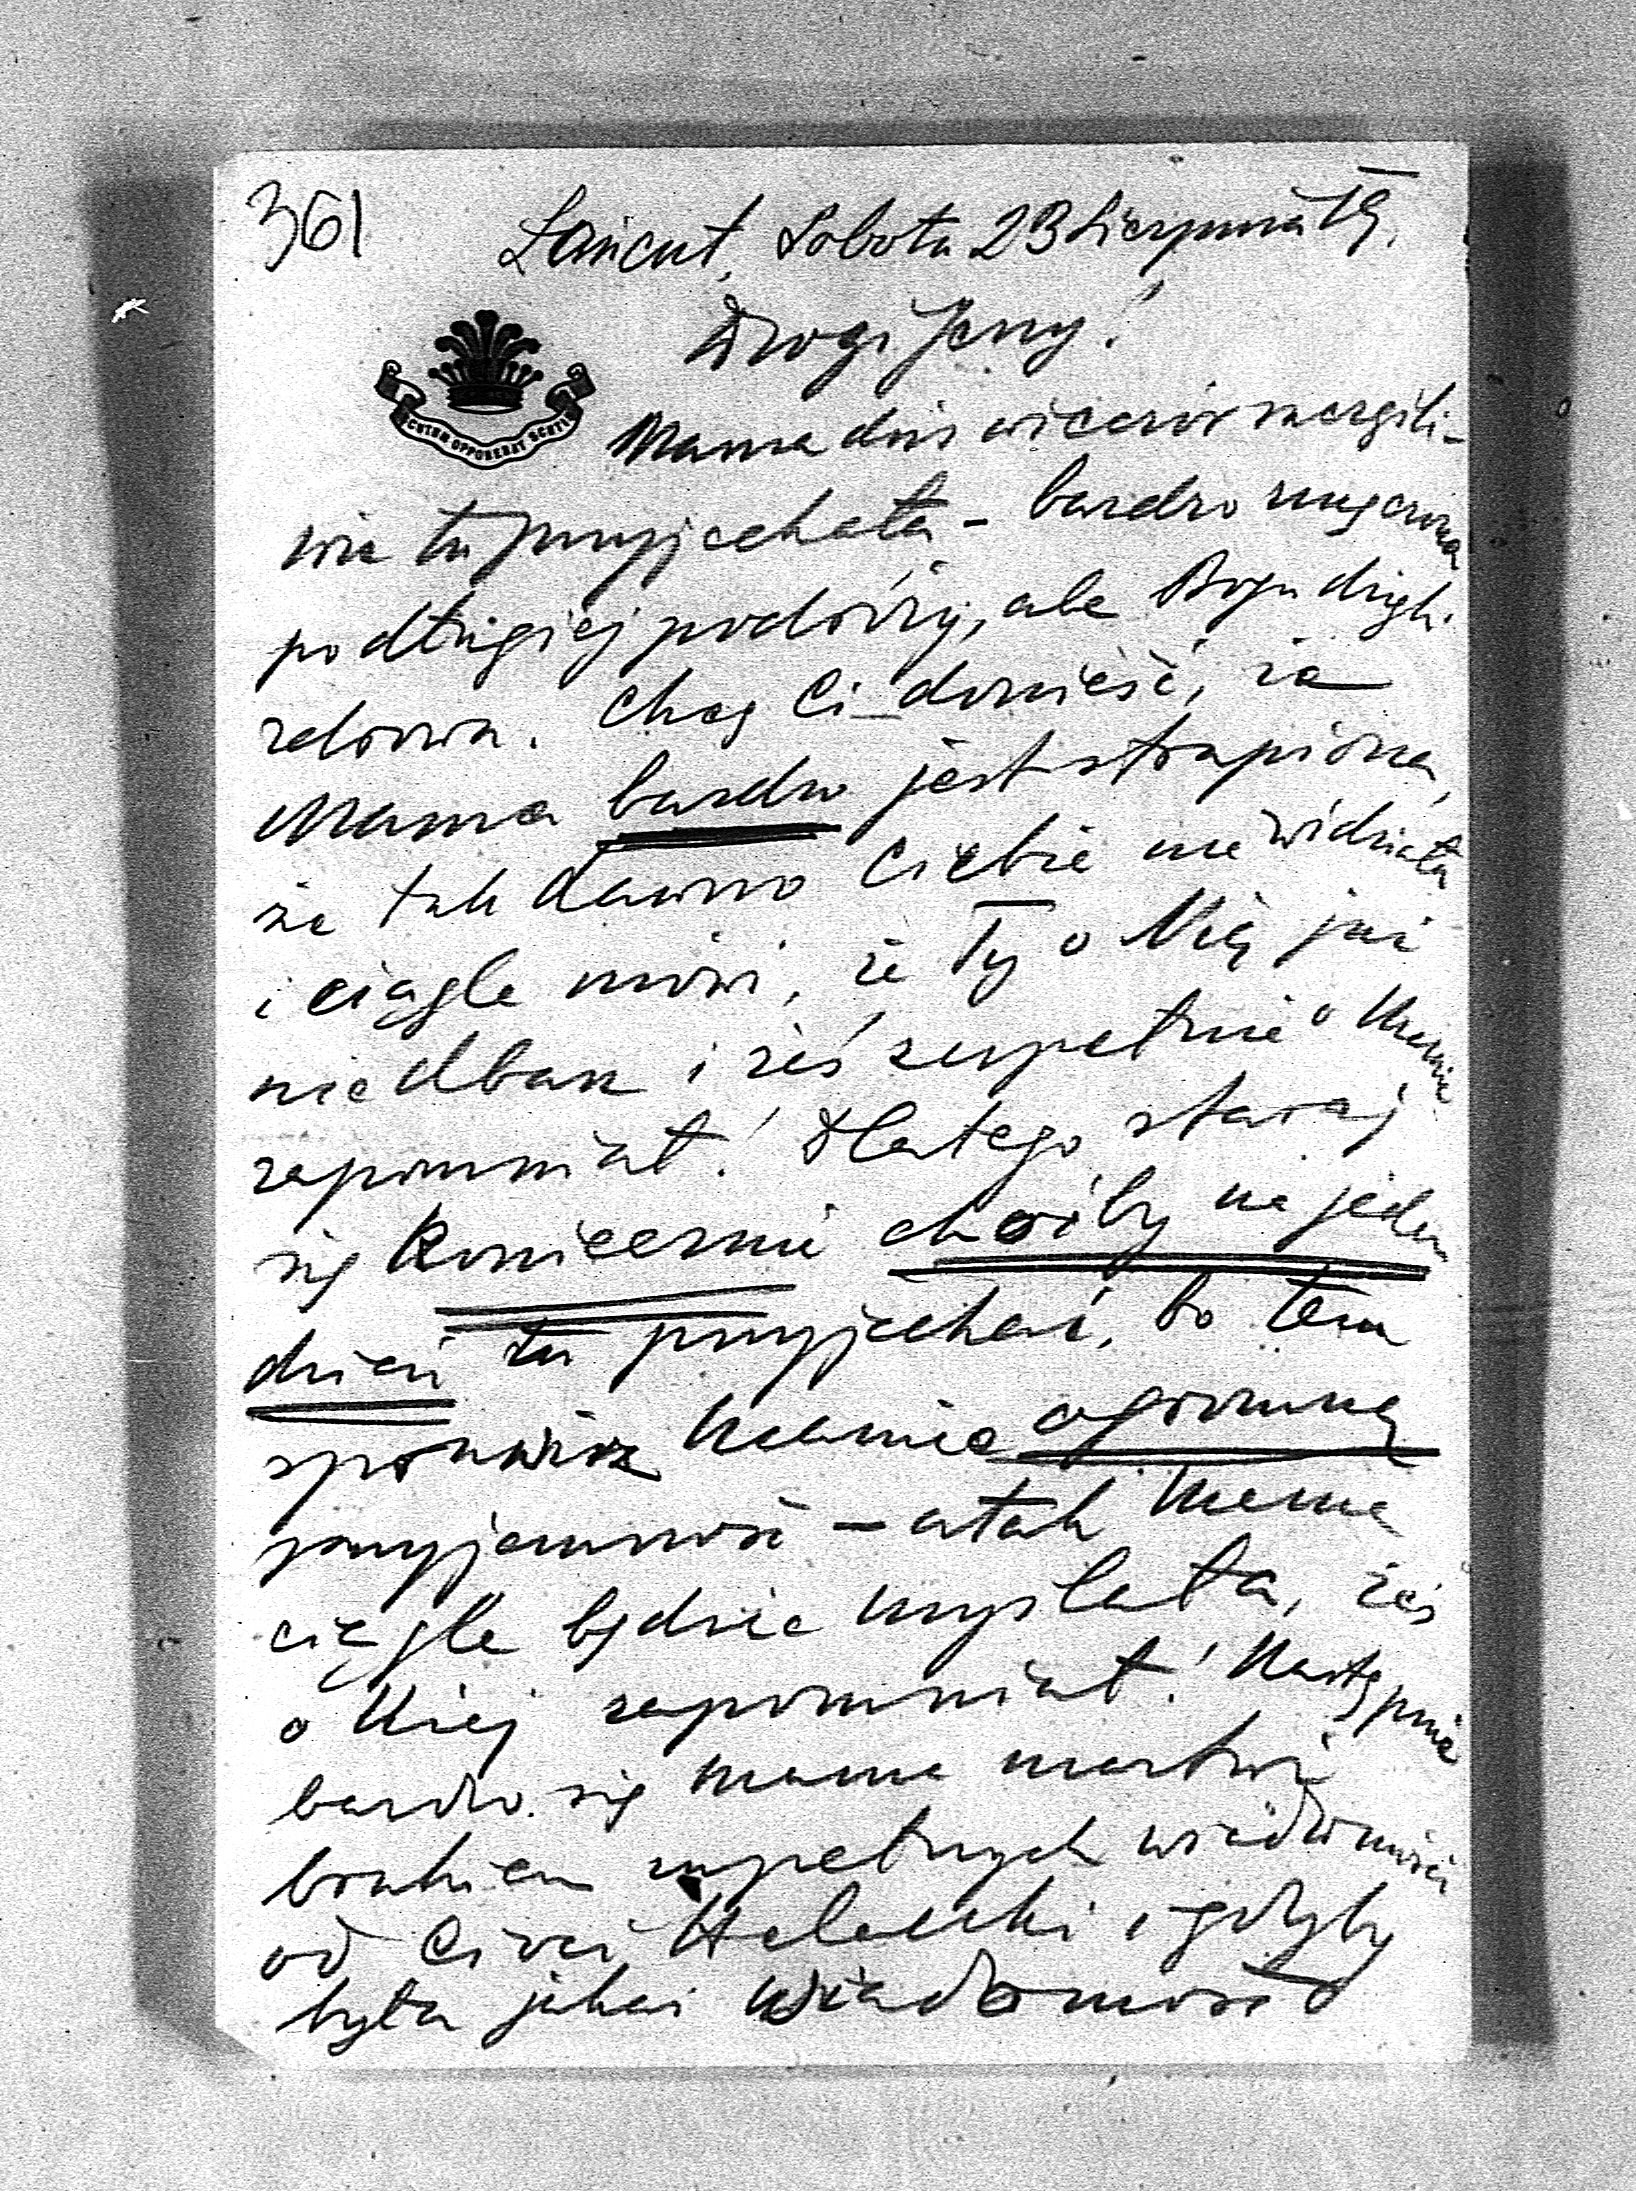 361
Łańcut, Sobota 23 Sierpnia 19.
Drogi Jerzy!
SCUTUM OPPONEBAT SCUTIS
Mama dziś wieczór szczęśli-
wie tu przyjechała - bardzo zmęczona
po długiej podróży, ale Bogu dzięki
zdrowa. Chcę Ci donieść, że
Mama bardzo jest strapiona,
że tak dawno Ciebie nie widziała
i ciągle mówi, że Ty o Nią już
nie dbasz i żeś zupełnie o Mamie
zapomniał! Dlatego staraj
się koniecznie choćby na jeden
dzień tu przyjechać, bo tem
sprawisz Mamie ogromną
przyjemność - a tak Mama
ciągle będzie myślała, żeś
o Niej zapomniał! Następnie
bardzo się Mama martwi
brakiem zupełnych wiadomości
od Cioci Helenki i gdyby
była jakaś wiadomość